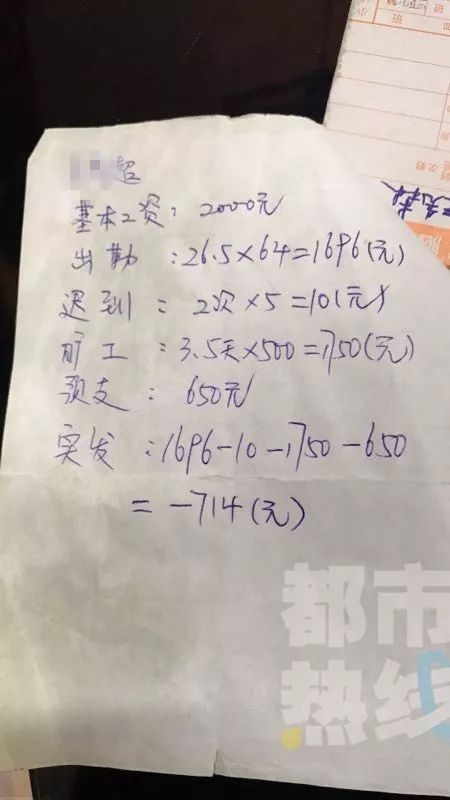 超
基本工资：2000元
出勤：26.5×64=1696(元)
迟到：2次×5=10(元)
旷工：3.5天×500=1750(元)
预支：650元
实发：1696-10-1750-650
=-714(元)
都市
热线